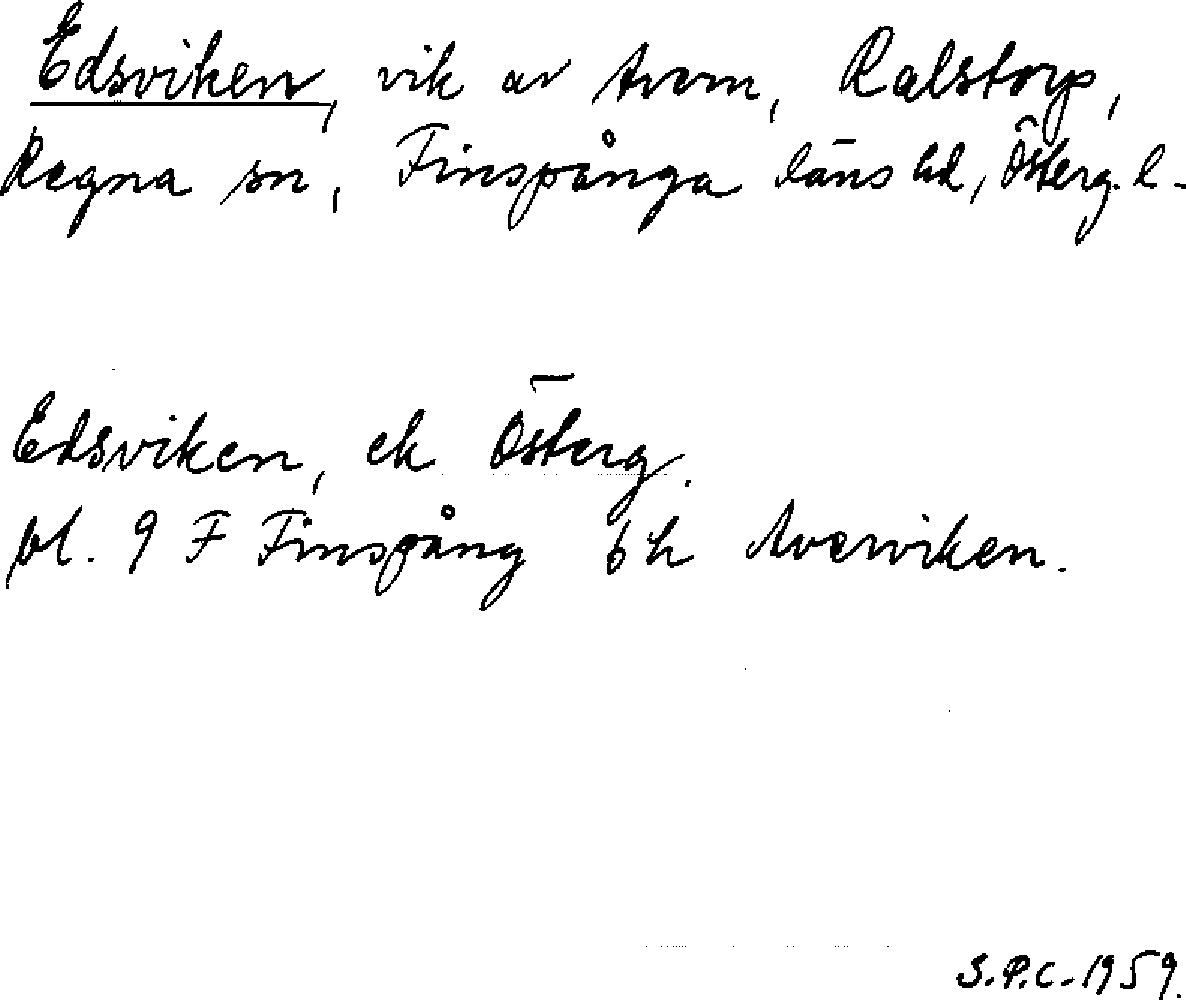 Edsviken, vik av Avern, Ralstorp,
Regna sn, Finspånga läns hd, Österg. l.
Edsviken, ek Österg.
bl. 9 F Finspång 6h Averviken.
S.P.C. 1959.